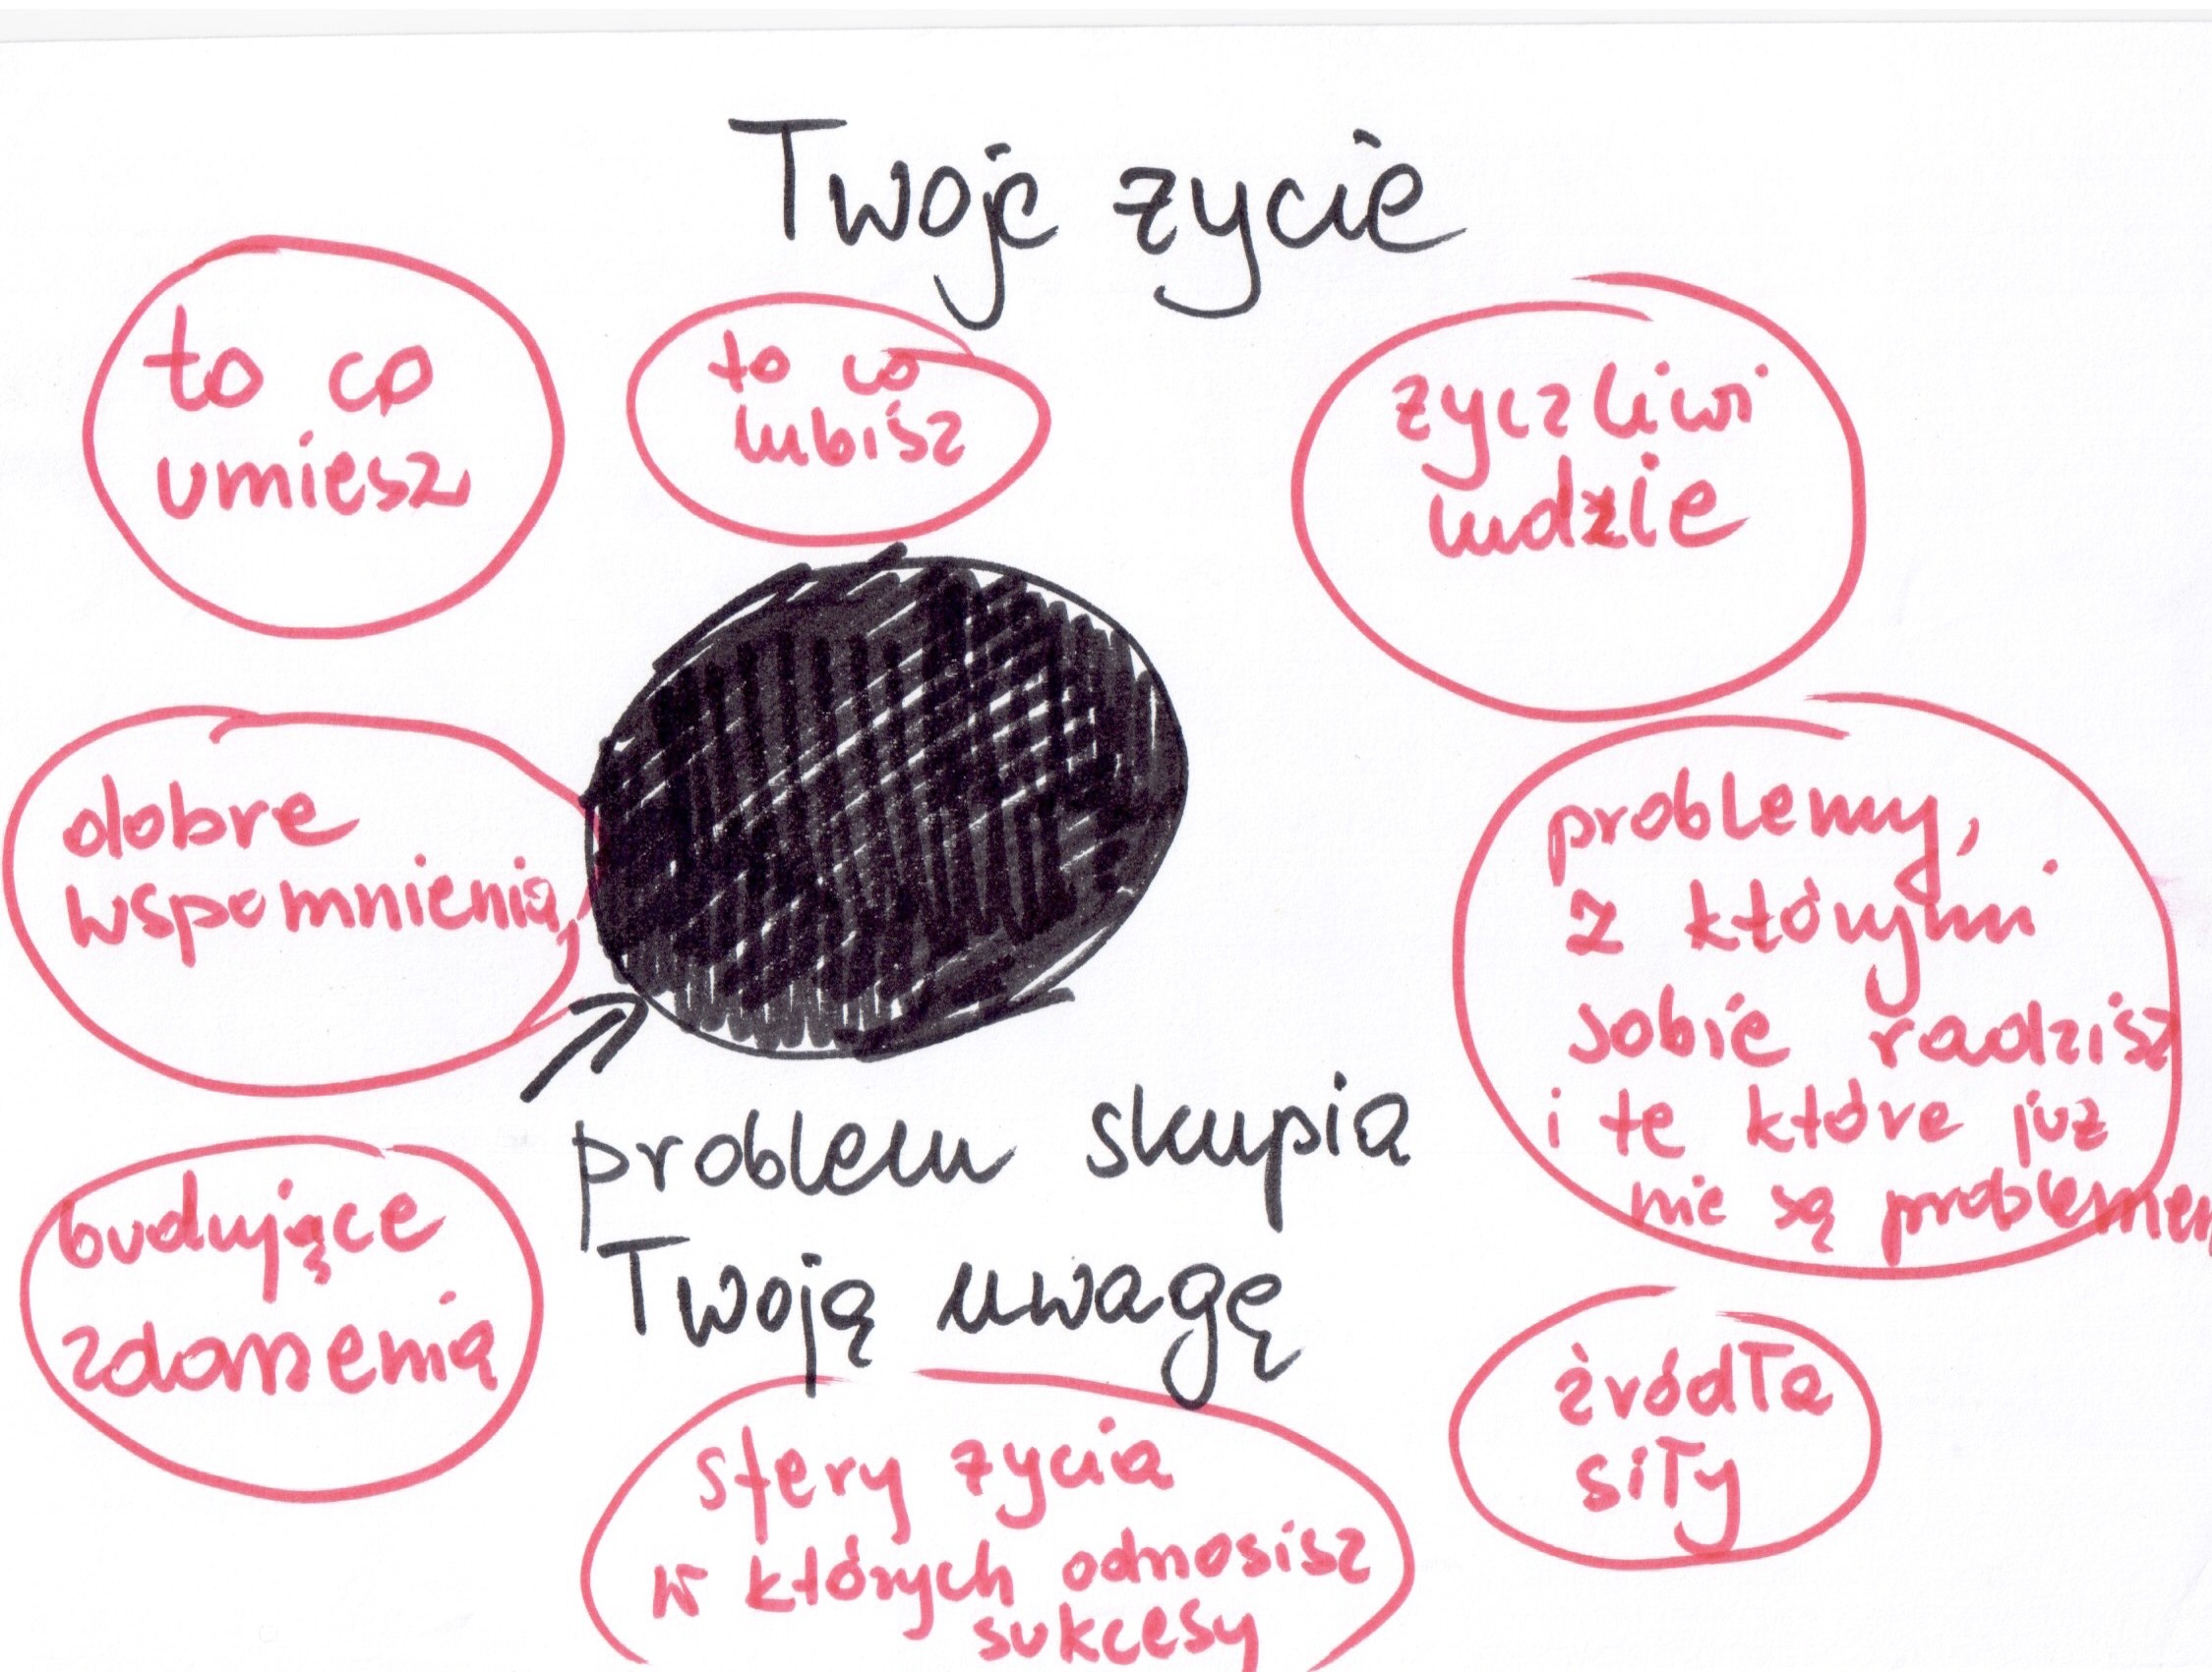 Twoje życie
to co
umiesz
to co
lubisz
życzliwi
ludzie
dobre
wspomnienia
problemy,
z którymi
sobie radzisz
i te które już
nie są problemem
problem skupia
Twoją uwagę
budujące
zdarzenia
źródła
siły
sfery życia
w których odnosisz
sukcesy